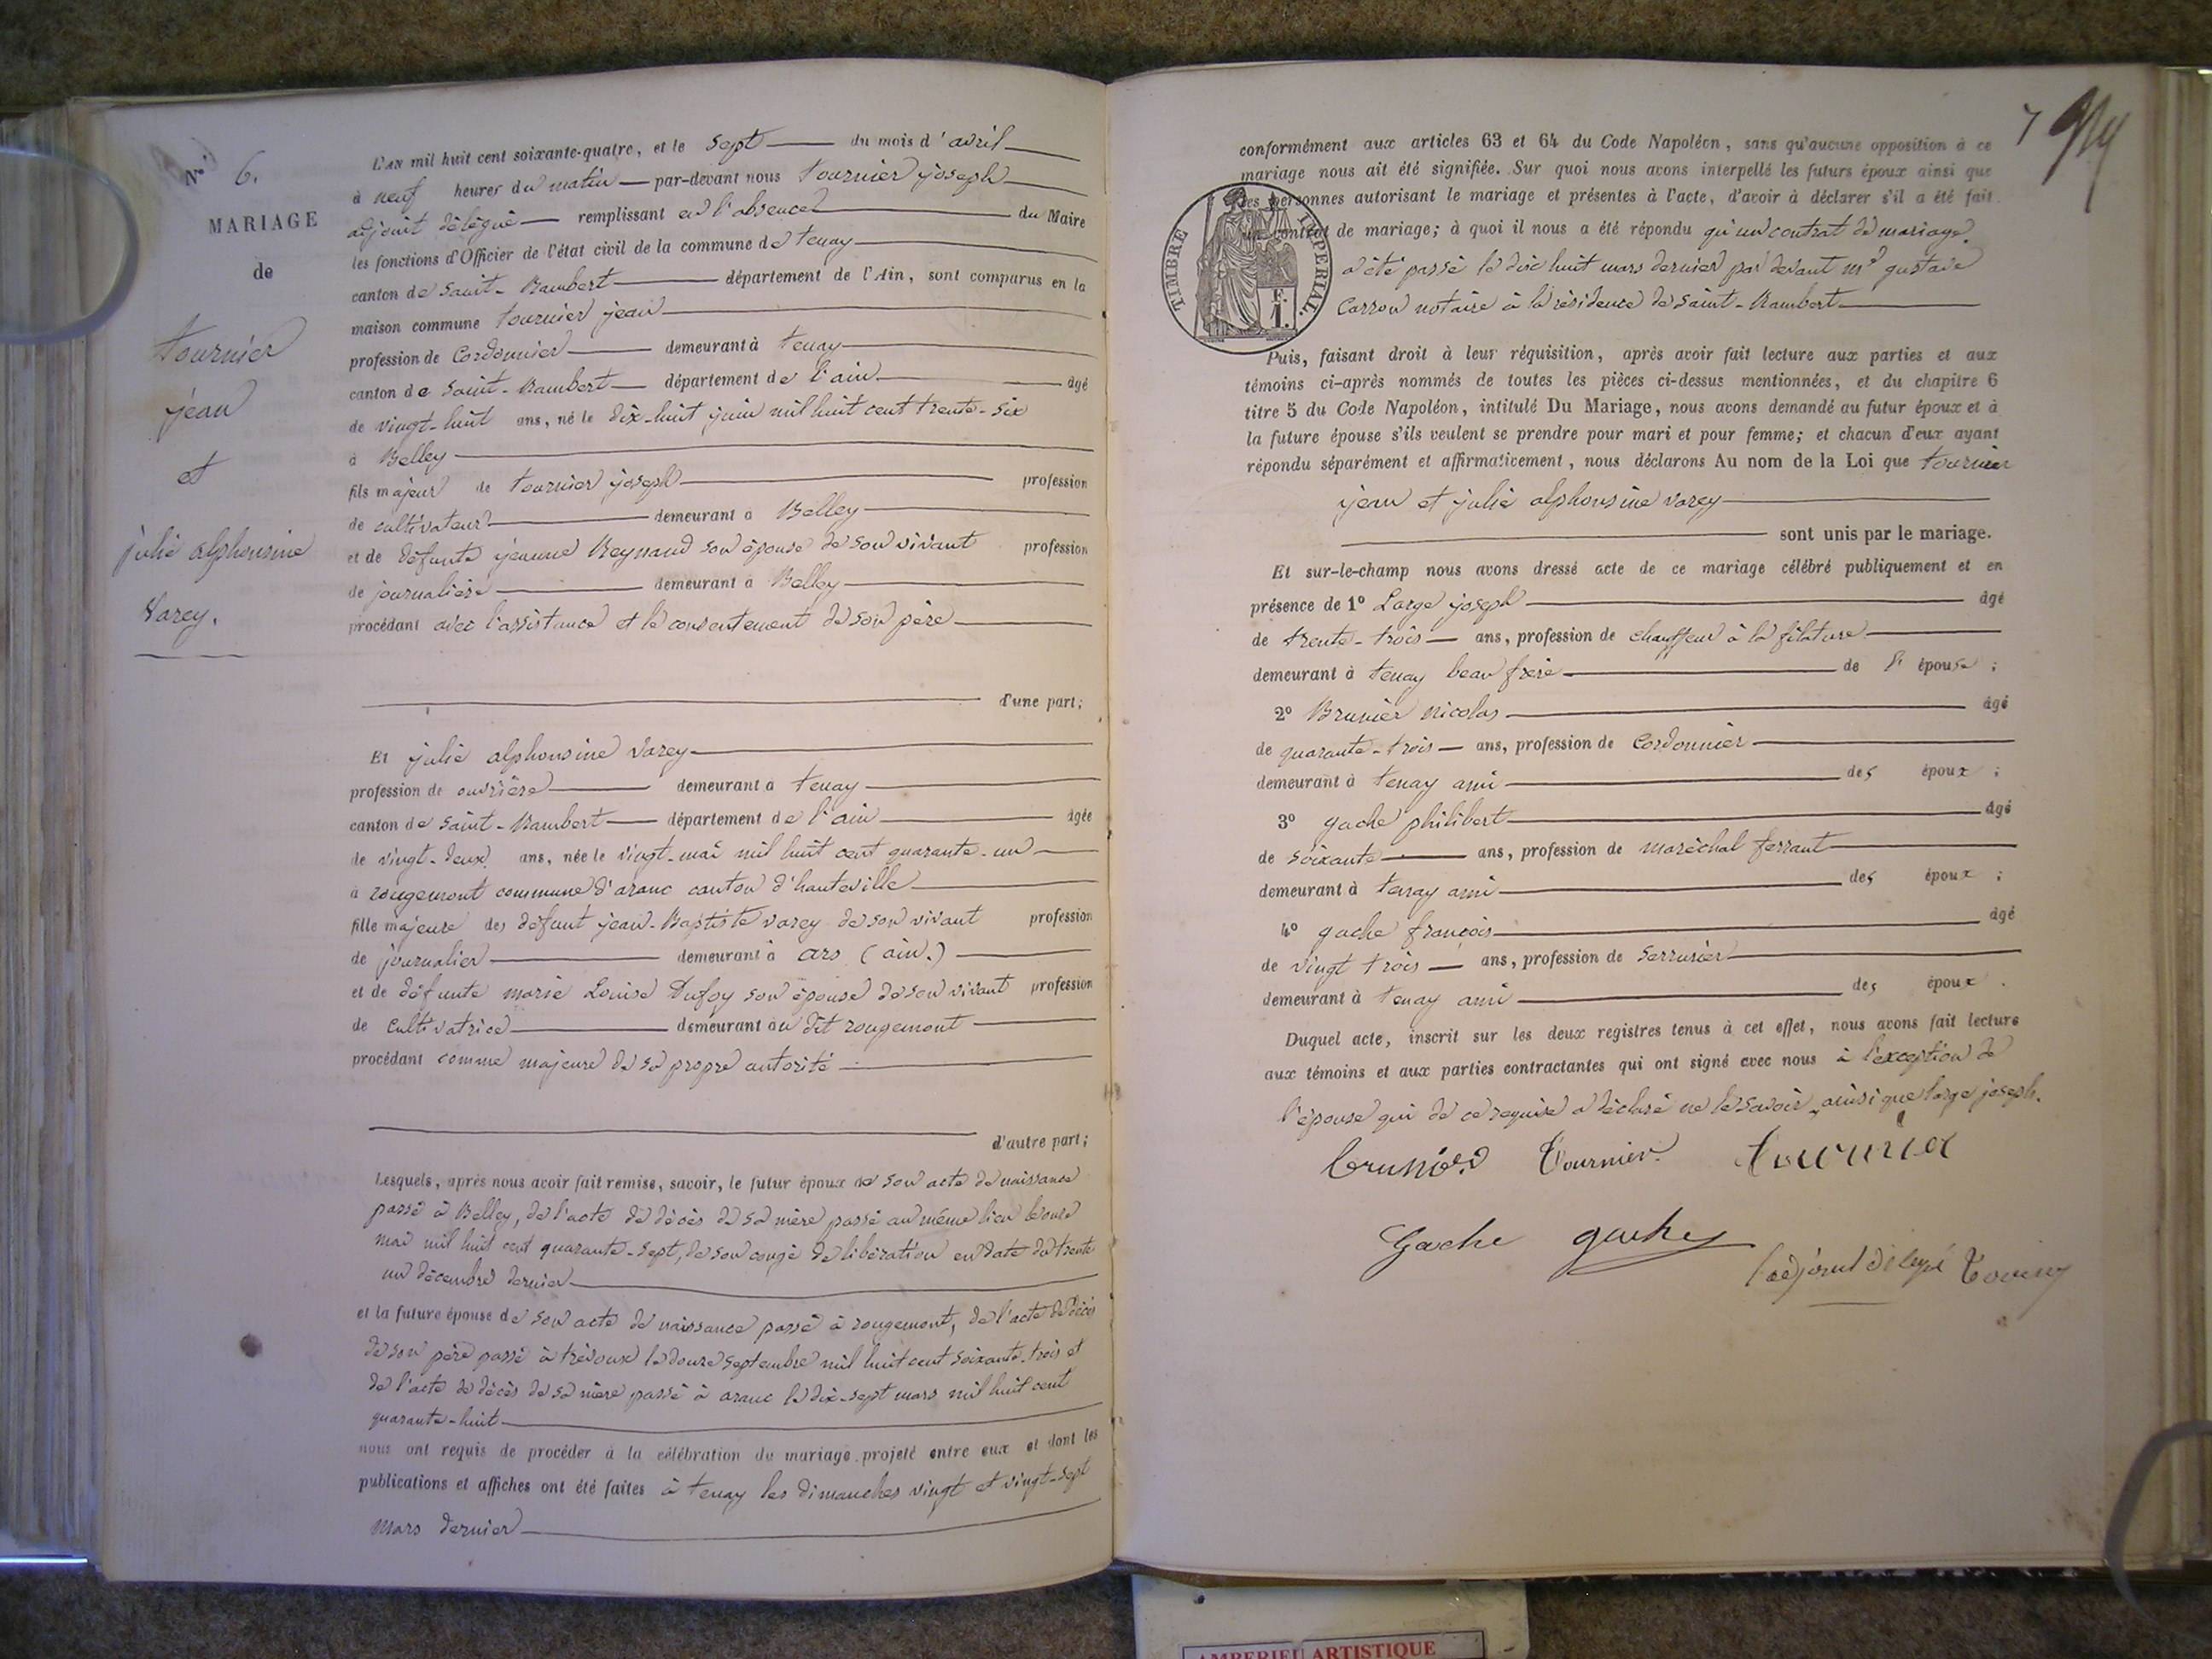 N° 6.
MARIAGE
de
tournier
jean
et
julie alphonsine
Varey.
L'AN mil huit cent soixante-quatre, et le sept du mois d'avril
à neuf heures du matin par-devant nous tournier joseph
adjoint délégué remplissant en l'absence du Maire
les fonctions d'Officier de l'état civil de la commune de tenay
canton de saint-Rambert département de l'Ain, sont comparus en la
maison commune tournier jean
profession de Cordonnier demeurant à tenay
canton de saint-Rambert département de l'ain âgé
de vingt-huit ans, né le dix-huit juin mil huit cent trente-six
à Belley
fils majeur de tournier joseph profession
de cultivateur demeurant à Belley
et de défunte jeanne Reynaud son épouse de son vivant profession
de journalière demeurant à Belley
procédant avec l'assistance et le consentement de son père
d'une part;
Et julie alphonsine varey
profession de ouvrière demeurant à tenay
canton de saint-Rambert département de l'ain âgée
de vingt-deux ans, née le vingt-mai mil huit cent quarante-un
à rougemont commune d'aranc canton d'hauteville
fille majeure des défunt jean-Baptiste varey de son vivant profession
de journalier demeurant à ars (ain.)
et de défunte marie Louise Dufoy son épouse de son vivant profession
de cultivatrice demeurant au dit rougemont
procédant comme majeure de sa propre autorité
d'autre part;
Lesquels, après nous avoir fait remise, savoir, le futur époux de son acte de naissance
passé à Belley, de l'acte de décès de sa mère passé au même lieu le onze
mai mil huit cent quarante-sept, de son congé de libération en date du trente
un décembre dernier
et la future épouse de son acte de naissance passé à rougemont, de l'acte de décès
de son père passé à trévoux le douze septembre mil huit cent soixante-trois et
de l'acte de décès de sa mère passé à aranc le dix-sept mars mil huit cent
quarante-huit
nous ont requis de procéder à la célébration du mariage projeté entre eux et dont les
publications et affiches ont été faites à tenay les dimanches vingt et vingt-sept
mars dernier
7
conformément aux articles 63 et 64 du Code Napoléon, sans qu'aucune opposition à ce
mariage nous ait été signifiée. Sur quoi nous avons interpellé les futurs époux ainsi que
les personnes autorisant le mariage et présentes à l'acte, d'avoir à déclarer s'il a été fait
un contrat de mariage; à quoi il nous a été répondu qu'un contrat de mariage
a été passé le dix huit mars dernier par devant me gustave
Carron notaire à la résidence de saint-Rambert
TIMBRE IMPERIAL.
F.
1.
Puis, faisant droit à leur réquisition, après avoir fait lecture aux parties et aux
témoins ci-après nommés de toutes les pièces ci-dessus mentionnées, et du chapitre 6
titre 5 du Code Napoléon, intitulé Du Mariage, nous avons demandé au futur époux et à
la future épouse s'ils veulent se prendre pour mari et pour femme; et chacun d'eux ayant
répondu séparément et affirmativement, nous déclarons Au nom de la Loi que tournier
jean et julie alphonsine varey
sont unis par le mariage.
Et sur-le-champ nous avons dressé acte de ce mariage célébré publiquement et en
présence de 1° Large joseph âgé
de trente-trois ans, profession de chauffeur à la filature
demeurant à tenay beau frère de l'épouse;
2° Brunier nicolas âgé
de quarante-trois ans, profession de Cordonnier
demeurant à tenay ami des époux;
3° gache philibert âgé
de soixante ans, profession de maréchal ferrant
demeurant à tenay ami des époux;
4° gache françois âgé
de vingt trois ans, profession de serrurier
demeurant à tenay ami des époux.
Duquel acte, inscrit sur les deux registres tenus à cet effet, nous avons fait lecture
aux témoins et aux parties contractantes qui ont signé avec nous à l'exception de
l'épouse qui de ce requise a déclaré ne le savoir, ainsi que large joseph.
brunier Tournier tournier
Gache gache
l'adjoint délégué
AMBERIEU ARTISTIQUE